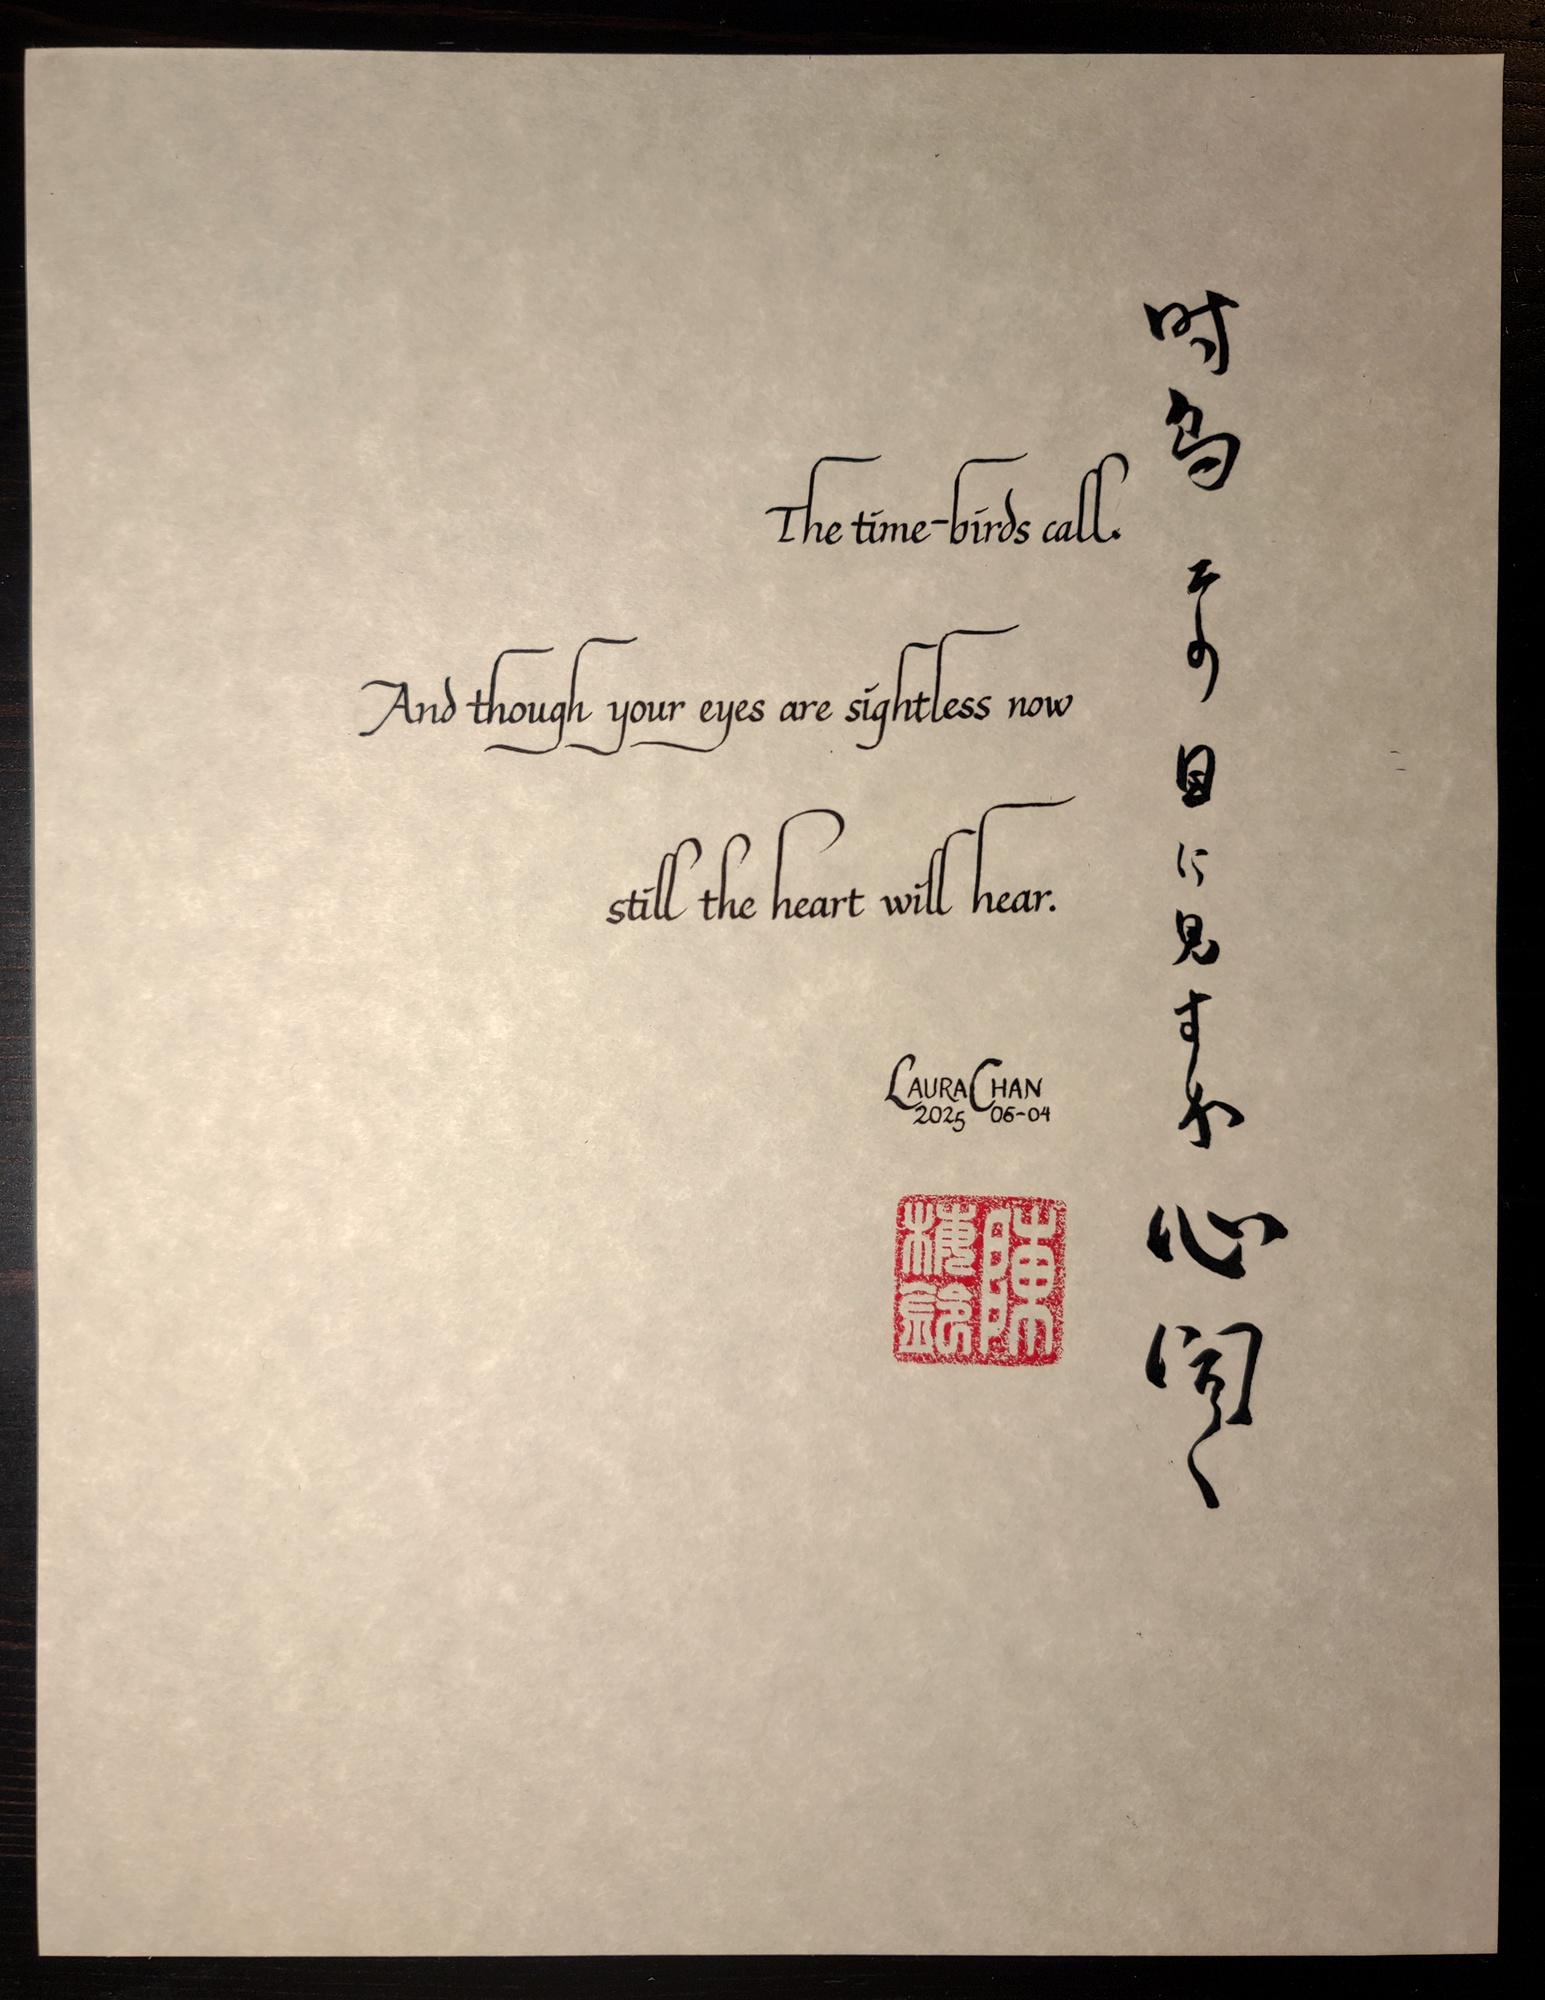 時鳥その目に見すや心聞く
The time-birds call.
And though your eyes are sightless now
still the heart will hear.
LAURA CHAN
2025 06-04
陳